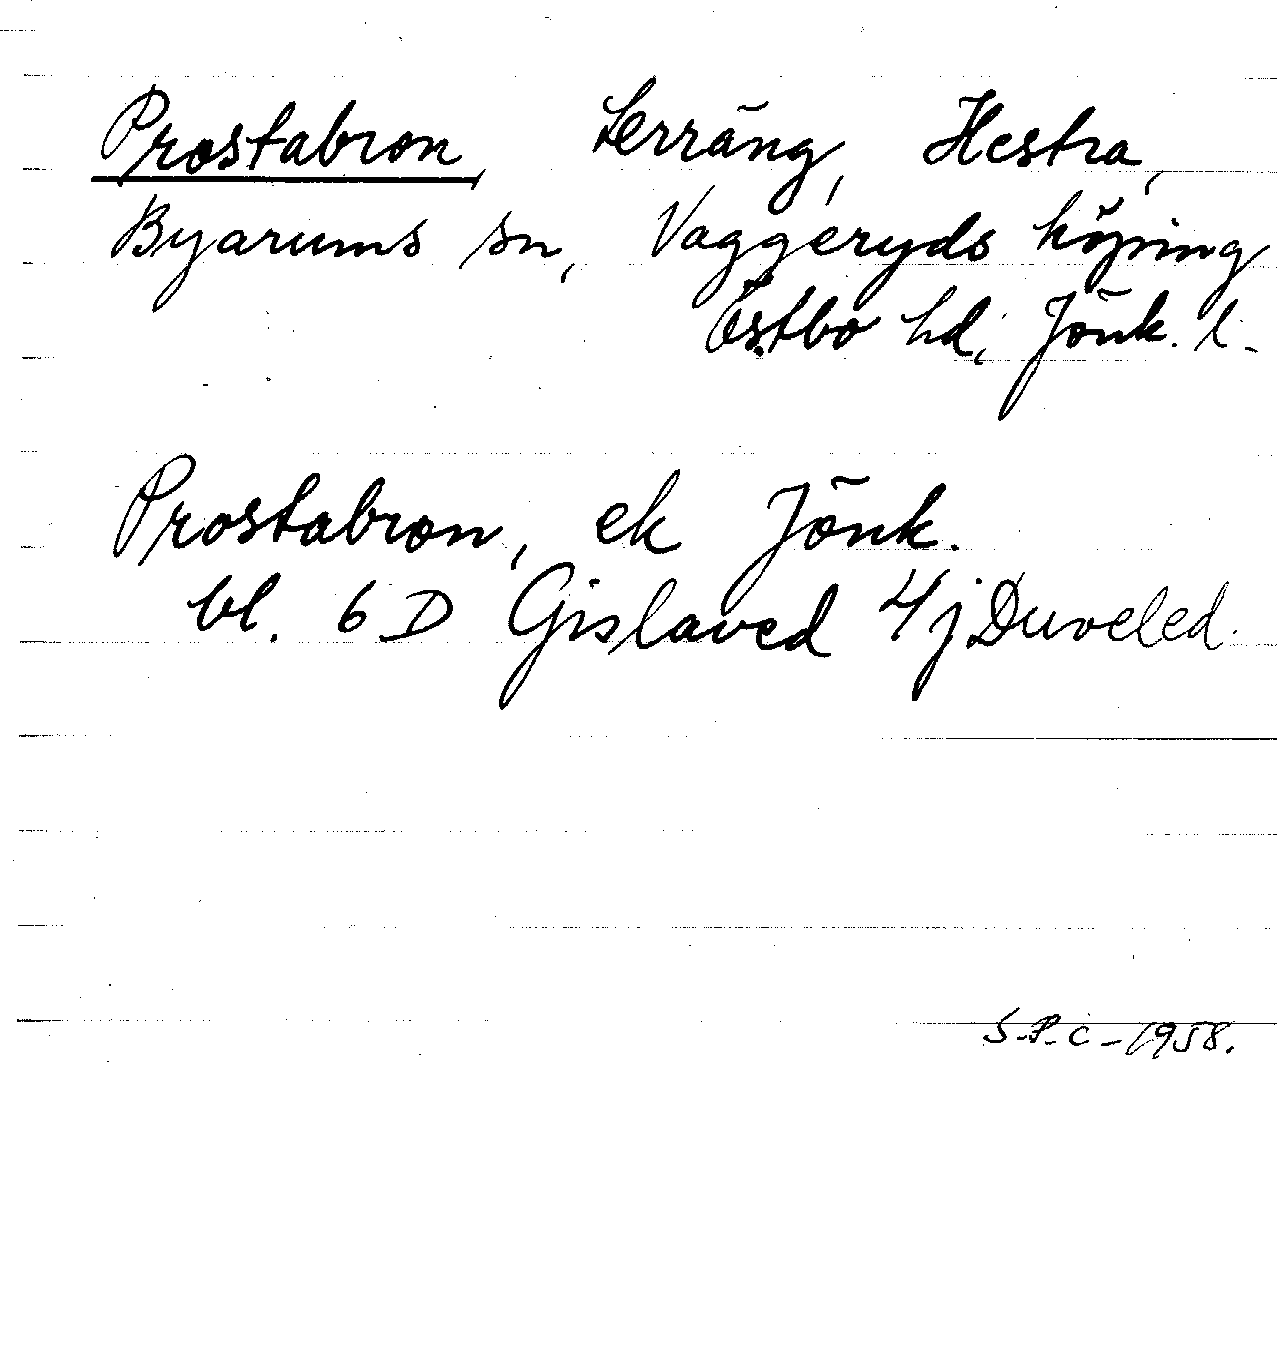 Prostabron, terräng, Hestra,
Byarums sn, Vaggeryds köping
Östbo hd, Jönk. l.
Prostabron, ek Jönk.
bl. 6 D Gislaved 4j Duveled.
S.P.C-1958.